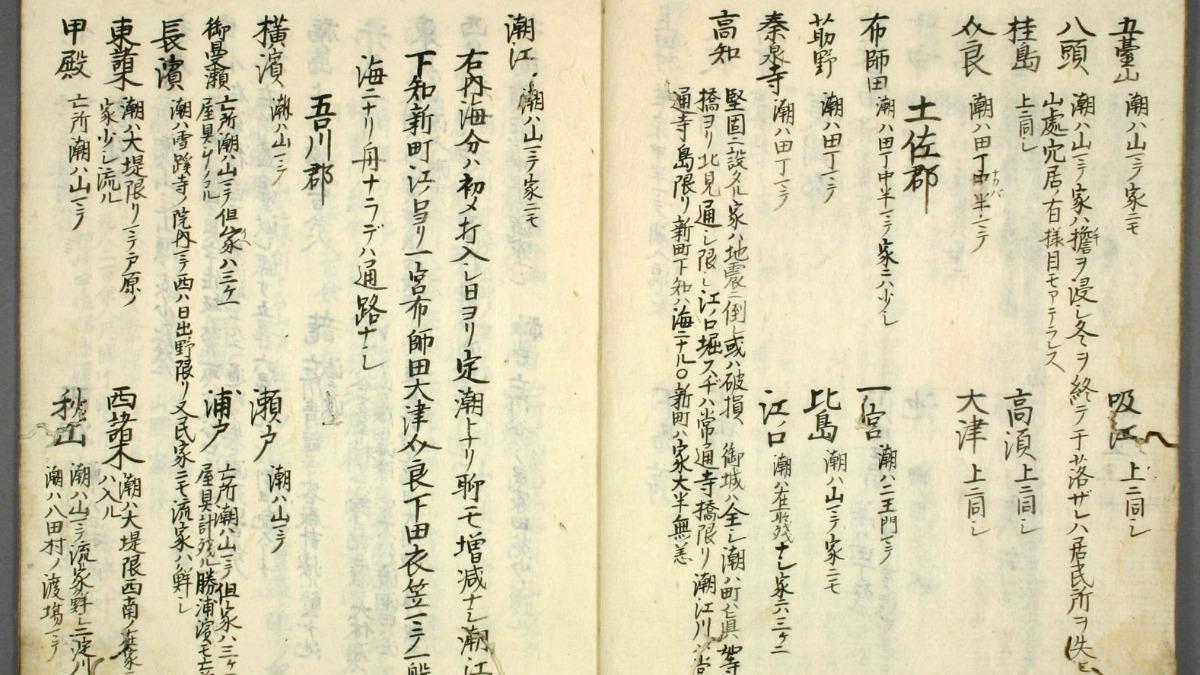 五臺山 潮ハ山ニテ家ニモ
吸江 上ニ同シ
八頭 潮ハ山ニテ家ハ擔ヲ浸シ冬ヲ終テ干落ザレハ居民所ヲ失
山處穴居ノ有様目モアテラレス
桂島 上ニ同シ
高須 上ニ同シ
众良 潮ハ田丁中半ニテ
大津 上ニ同シ
土佐郡
布師田 潮ハ田丁中半ニテ家ニハ少シ
一宮 潮ハ二王門ニテ
薊野 潮ハ田丁ニテ
比島 潮ハ山ニテ家ニモ
秦泉寺 潮ハ田丁ニテ
江ノ口 潮ハ在所残ナシ家六三ケ一
高知 堅固ニ設タル家ハ地震ニ倒レ或ハ破損、御城ハ全シ潮ハ町ハ真如寺
橋ヨリ北見通シ限シ江ノ口堀スヂハ常通寺橋限リ潮江川ハ常
通寺島限リ新町下知ハ海ニナル○新町ハ家大半無恙
潮江 潮ハ山ニテ家ニモ
右内海分ハ初メ打入シ日ヨリ定潮上ナリ聊モ増減ナシ潮江
下知新町江ノ口ヨリ一宮布師田大津众良下田衣笠ニテ一般
海ニナリ舟ナラデハ通路ナシ
吾川郡
横濱 潮ハ山ニテ
瀬戸 潮ハ山ニテ
御畳瀬 亡所潮ハ山ニテ但家ハ三ケ一
屋具少シノコル
浦戸 亡所潮ハ山ニテ但家ハ三ケ
屋具計残ル勝浦濱モ亡
長濱 潮ハ雪蹊寺ノ院内ニテ西ハ日出野限リ又民家ニモ流家ハ鮮シ
東諸木 潮ハ大堤限リニテ戸原ノ
家少シ流ル
西諸木 潮ハ大堤限西南ノ在家ニ
ハ入ル
甲殿 亡所潮ハ山ニテ
秋山 潮ハ山ニテ流家鮮シ二淀川
潮ハ八田村ノ渡場ニテ